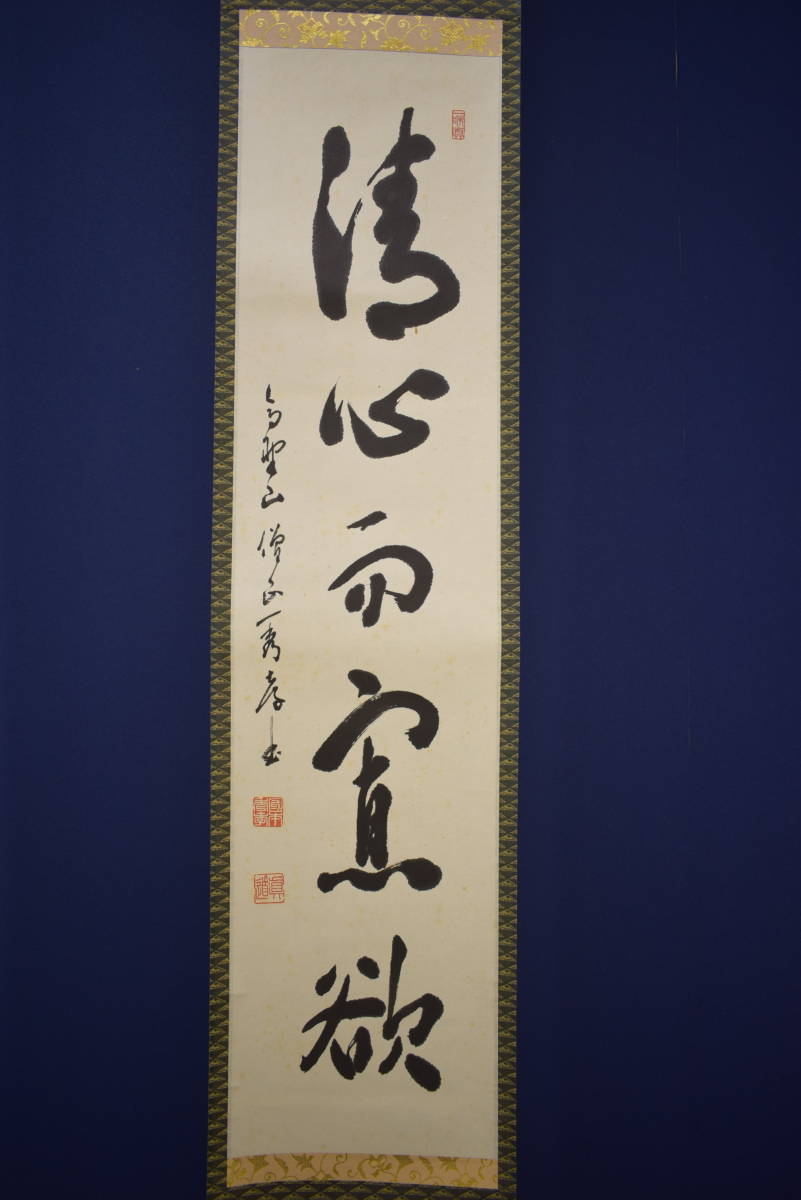 清心而寡欲
高野山 僧正秀孝書